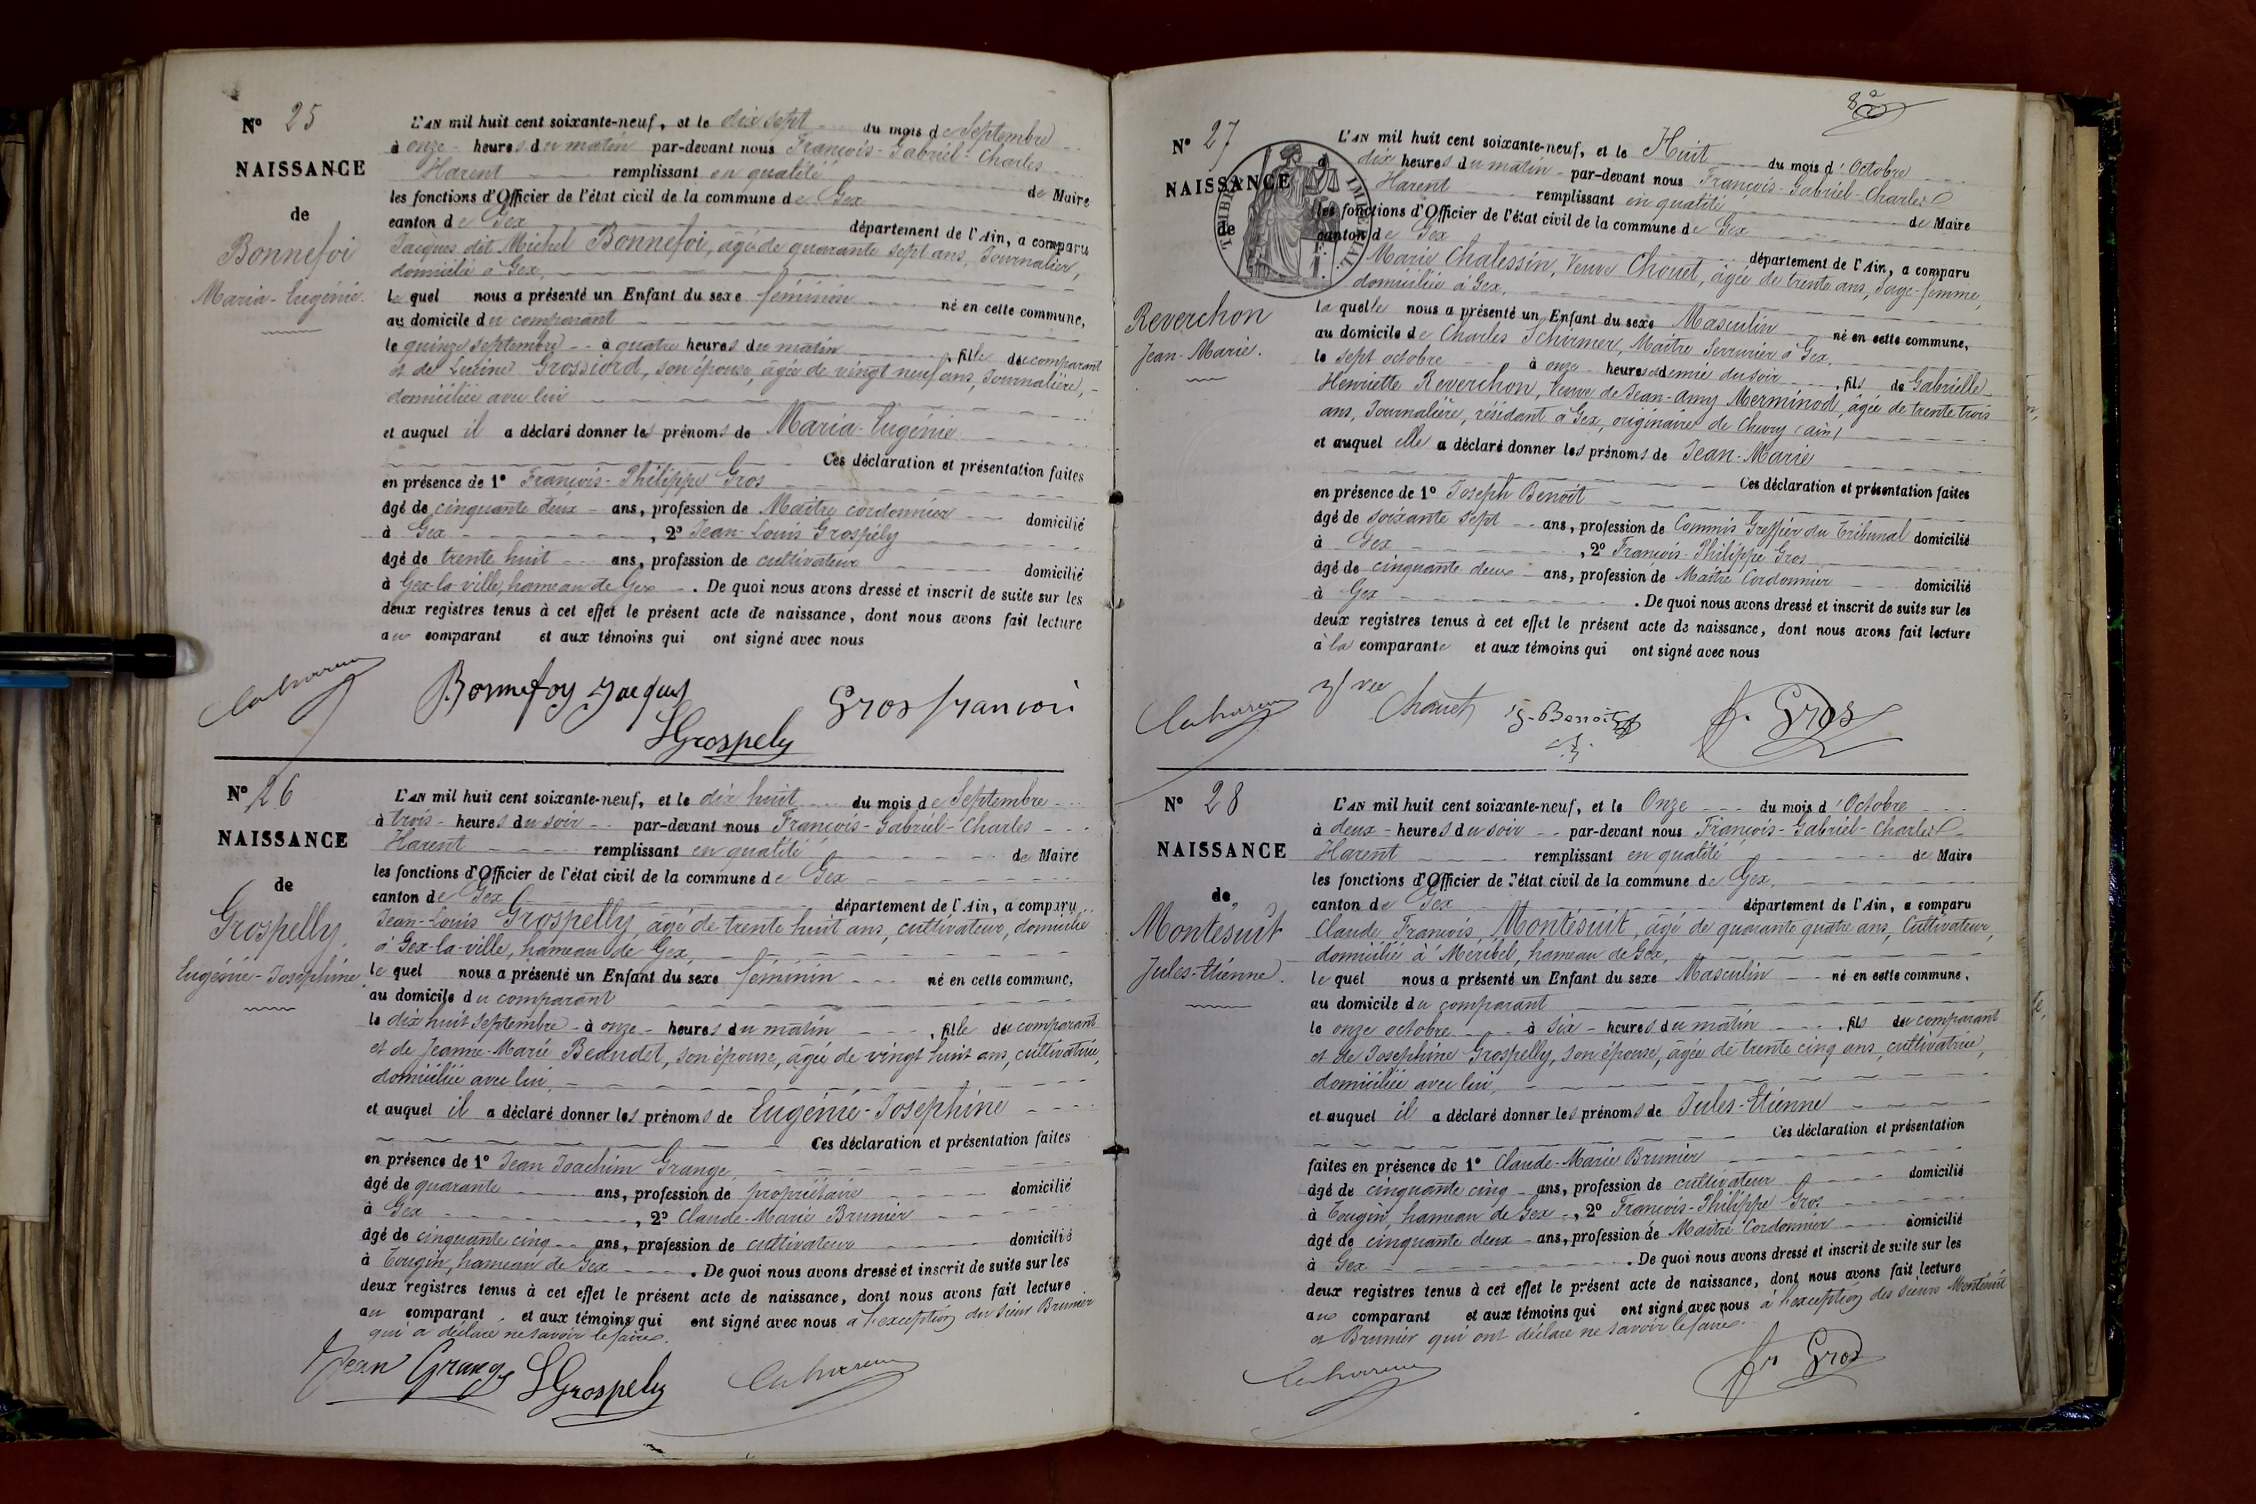 N° 25
NAISSANCE
de
Bonnefoi
Maria-Eugénie.
L'AN mil huit cent soixante-neuf, et le dix sept du mois de Septembre
à onze heures du matin par-devant nous François-Gabriel-Charles
Harent remplissant en qualité de Maire
les fonctions d'Officier de l'état civil de la commune de Gex
canton de Gex département de l'Ain, a comparu
Jacques dit Michel Bonnefoi, âgé de quarante sept ans, Journalier,
domicilié à Gex,
le quel nous a présenté un Enfant du sexe féminin né en cette commune,
au domicile du comparant
le quinze septembre à quatre heures du matin, fille du comparant
et de Lucine Grossiord, son épouse, âgée de vingt neuf ans, Journalière,
domiciliée avec lui
et auquel il a déclaré donner les prénoms de Maria-Eugénie
Ces déclaration et présentation faites
en présence de 1° François-Philippe Gros
âgé de cinquante deux ans, profession de Maître cordonnier domicilié
à Gex, 2° Jean-Louis Grospély
âgé de trente huit ans, profession de cultivateur domicilié
à Gex-la-ville, hameau de Gex. De quoi nous avons dressé et inscrit de suite sur les
deux registres tenus à cet effet le présent acte de naissance, dont nous avons fait lecture
au comparant et aux témoins qui ont signé avec nous
Bonnefoy Jacques
Gros françois
LGrospely
N° 26
NAISSANCE
de
Grospelly.
Eugénie-Josephine
L'AN mil huit cent soixante-neuf, et le dix huit du mois de Septembre
à trois heures du soir par-devant nous François-Gabriel-Charles
Harent remplissant en qualité de Maire
les fonctions d'Officier de l'état civil de la commune de Gex
canton de Gex département de l'Ain, a comparu
Jean-Louis Grospelly, âgé de trente huit ans, cultivateur, domicilié
à Gex-la-ville, hameau de Gex,
le quel nous a présenté un Enfant du sexe féminin né en cette commune,
au domicile du comparant
le dix huit septembre à onze heures du matin, fille du comparant
et de Jeanne-Marie Beaudet, son épouse, âgée de vingt huit ans, cultivatrice,
domiciliée avec lui,
et auquel il a déclaré donner les prénoms de Eugénie-Josephine
Ces déclaration et présentation faites
en présence de 1° Jean Joachim Grange,
âgé de quarante ans, profession de propriétaire domicilié
à Gex, 2° Claude-Marie Brunier
âgé de cinquante cinq ans, profession de cultivateur domicilié
à Tougin, hameau de Gex. De quoi nous avons dressé et inscrit de suite sur les
deux registres tenus à cet effet le présent acte de naissance, dont nous avons fait lecture
au comparant et aux témoins qui ont signé avec nous à l'exception du sieur Brunier
qui a déclaré ne savoir le faire.
Jean Grange
LGrospely
N° 27
NAISSANCE
de
Reverchon
Jean-Marie.
TIMBRE IMPÉRIAL
L'AN mil huit cent soixante-neuf, et le Huit du mois d'Octobre
à dix heures du matin par-devant nous François-Gabriel-Charles
Harent remplissant en qualité de Maire
les fonctions d'Officier de l'état civil de la commune de Gex
canton de Gex département de l'Ain, a comparu
Marie Chalessin, Veuve Chouet, âgée de trente ans, Sage-femme,
domiciliée à Gex,
la quelle nous a présenté un Enfant du sexe Masculin né en cette commune,
au domicile de Charles Schirmer, Maître Serrurier à Gex,
le sept octobre à onze heures et demie du soir, fils de Gabrielle
Henriette Reverchon, Veuve de Jean-Amy Merminod, âgée de trente trois
ans, Journalière, résidant à Gex, originaire de Chevry (ain)
et auquel elle a déclaré donner les prénoms de Jean-Marie
Ces déclaration et présentation faites
en présence de 1° Joseph Benoit
âgé de soixante sept ans, profession de Commis Greffier du Tribunal domicilié
à Gex, 2° François-Philippe Gros
âgé de cinquante deux ans, profession de Maître Cordonnier domicilié
à Gex. De quoi nous avons dressé et inscrit de suite sur les
deux registres tenus à cet effet le présent acte de naissance, dont nous avons fait lecture
à la comparante et aux témoins qui ont signé avec nous
Chouet
Benoit
f. Gros
N° 28
NAISSANCE
de
Montésuit
Jules-Etienne.
L'AN mil huit cent soixante-neuf, et le Onze du mois d'Octobre
à deux heures du soir par-devant nous François-Gabriel-Charles
Harent remplissant en qualité de Maire
les fonctions d'Officier de l'état civil de la commune de Gex,
canton de Gex département de l'Ain, a comparu
Claude François Montésuit, âgé de quarante quatre ans, Cultivateur,
domicilié à Méribel, hameau de Gex,
le quel nous a présenté un Enfant du sexe Masculin né en cette commune,
au domicile du comparant
le onze octobre à six heures du matin, fils du comparant
et de Josephine Grospelly, son épouse, âgée de trente cinq ans, cultivatrice,
domiciliée avec lui,
et auquel il a déclaré donner les prénoms de Jules-Etienne
Ces déclaration et présentation
faites en présence de 1° Claude-Marie Brunier
âgé de cinquante cinq ans, profession de cultivateur domicilié
à Tougin, hameau de Gex, 2° François-Philippe Gros
âgé de cinquante deux ans, profession de Maître Cordonnier domicilié
à Gex. De quoi nous avons dressé et inscrit de suite sur les
deux registres tenus à cet effet le présent acte de naissance, dont nous avons fait lecture
au comparant et aux témoins qui ont signé avec nous à l'exception des sieurs Montésuit
et Brunier qui ont déclaré ne savoir le faire.
fs Gros